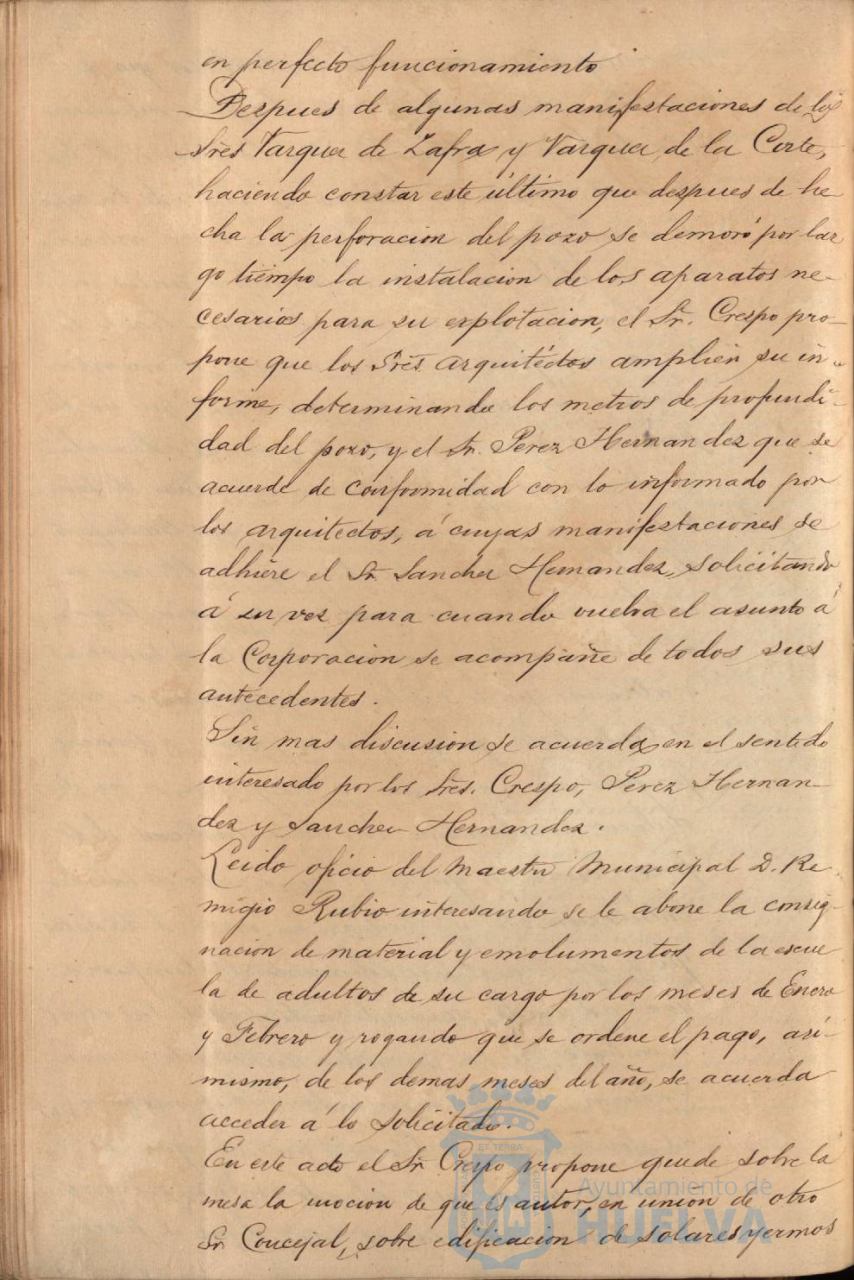 en perfecto funcionamiento
Despues de algunas manifestaciones de los
Sres Vazquez de Zafra y Vazquez de la Corte,
haciendo constar este último que despues de he-
cha la perforacion del pozo se demoró por lar
go tiempo la instalacion de los aparatos ne-
cesarios para su explotacion, el Sr. Crespo pro-
pone que los Sres arquitéctos amplien su in-
forme, determinando los metros de profundi-
dad del pozo, y el Sr. Perez Hernandez que se
acuerde de conformidad con lo informado por
los arquitectos, á cuyas manifestaciones se
adhiere el Sr. Sanchez Hernandez, solicitando
á su vez para cuando vuelva el asunto á
la Corporacion se acompañe de todos sus
antecedentes.
Sin mas discusion se acuerda en el sentido
interesado por los Sres. Crespo, Perez Hernan-
dez y Sanchez Hernandez.
Leido oficio del Maestro Municipal D. Re-
migio Rubio interesando se le abone la consig-
nacion de material y emolumentos de la escue
la de adultos de su cargo por los meses de Enero
y Febrero y rogando que se ordene el pago, asi-
mismo, de los demas meses del año, se acuerda
acceder á lo solicitado.
En este acto el Sr. Crespo propone quede sobre la
mesa la mocion de que es autor, en union de otro
Sr. Concejal, sobre edificacion de solares yermos
ET TERRA
Ayuntamiento de
HUELVA